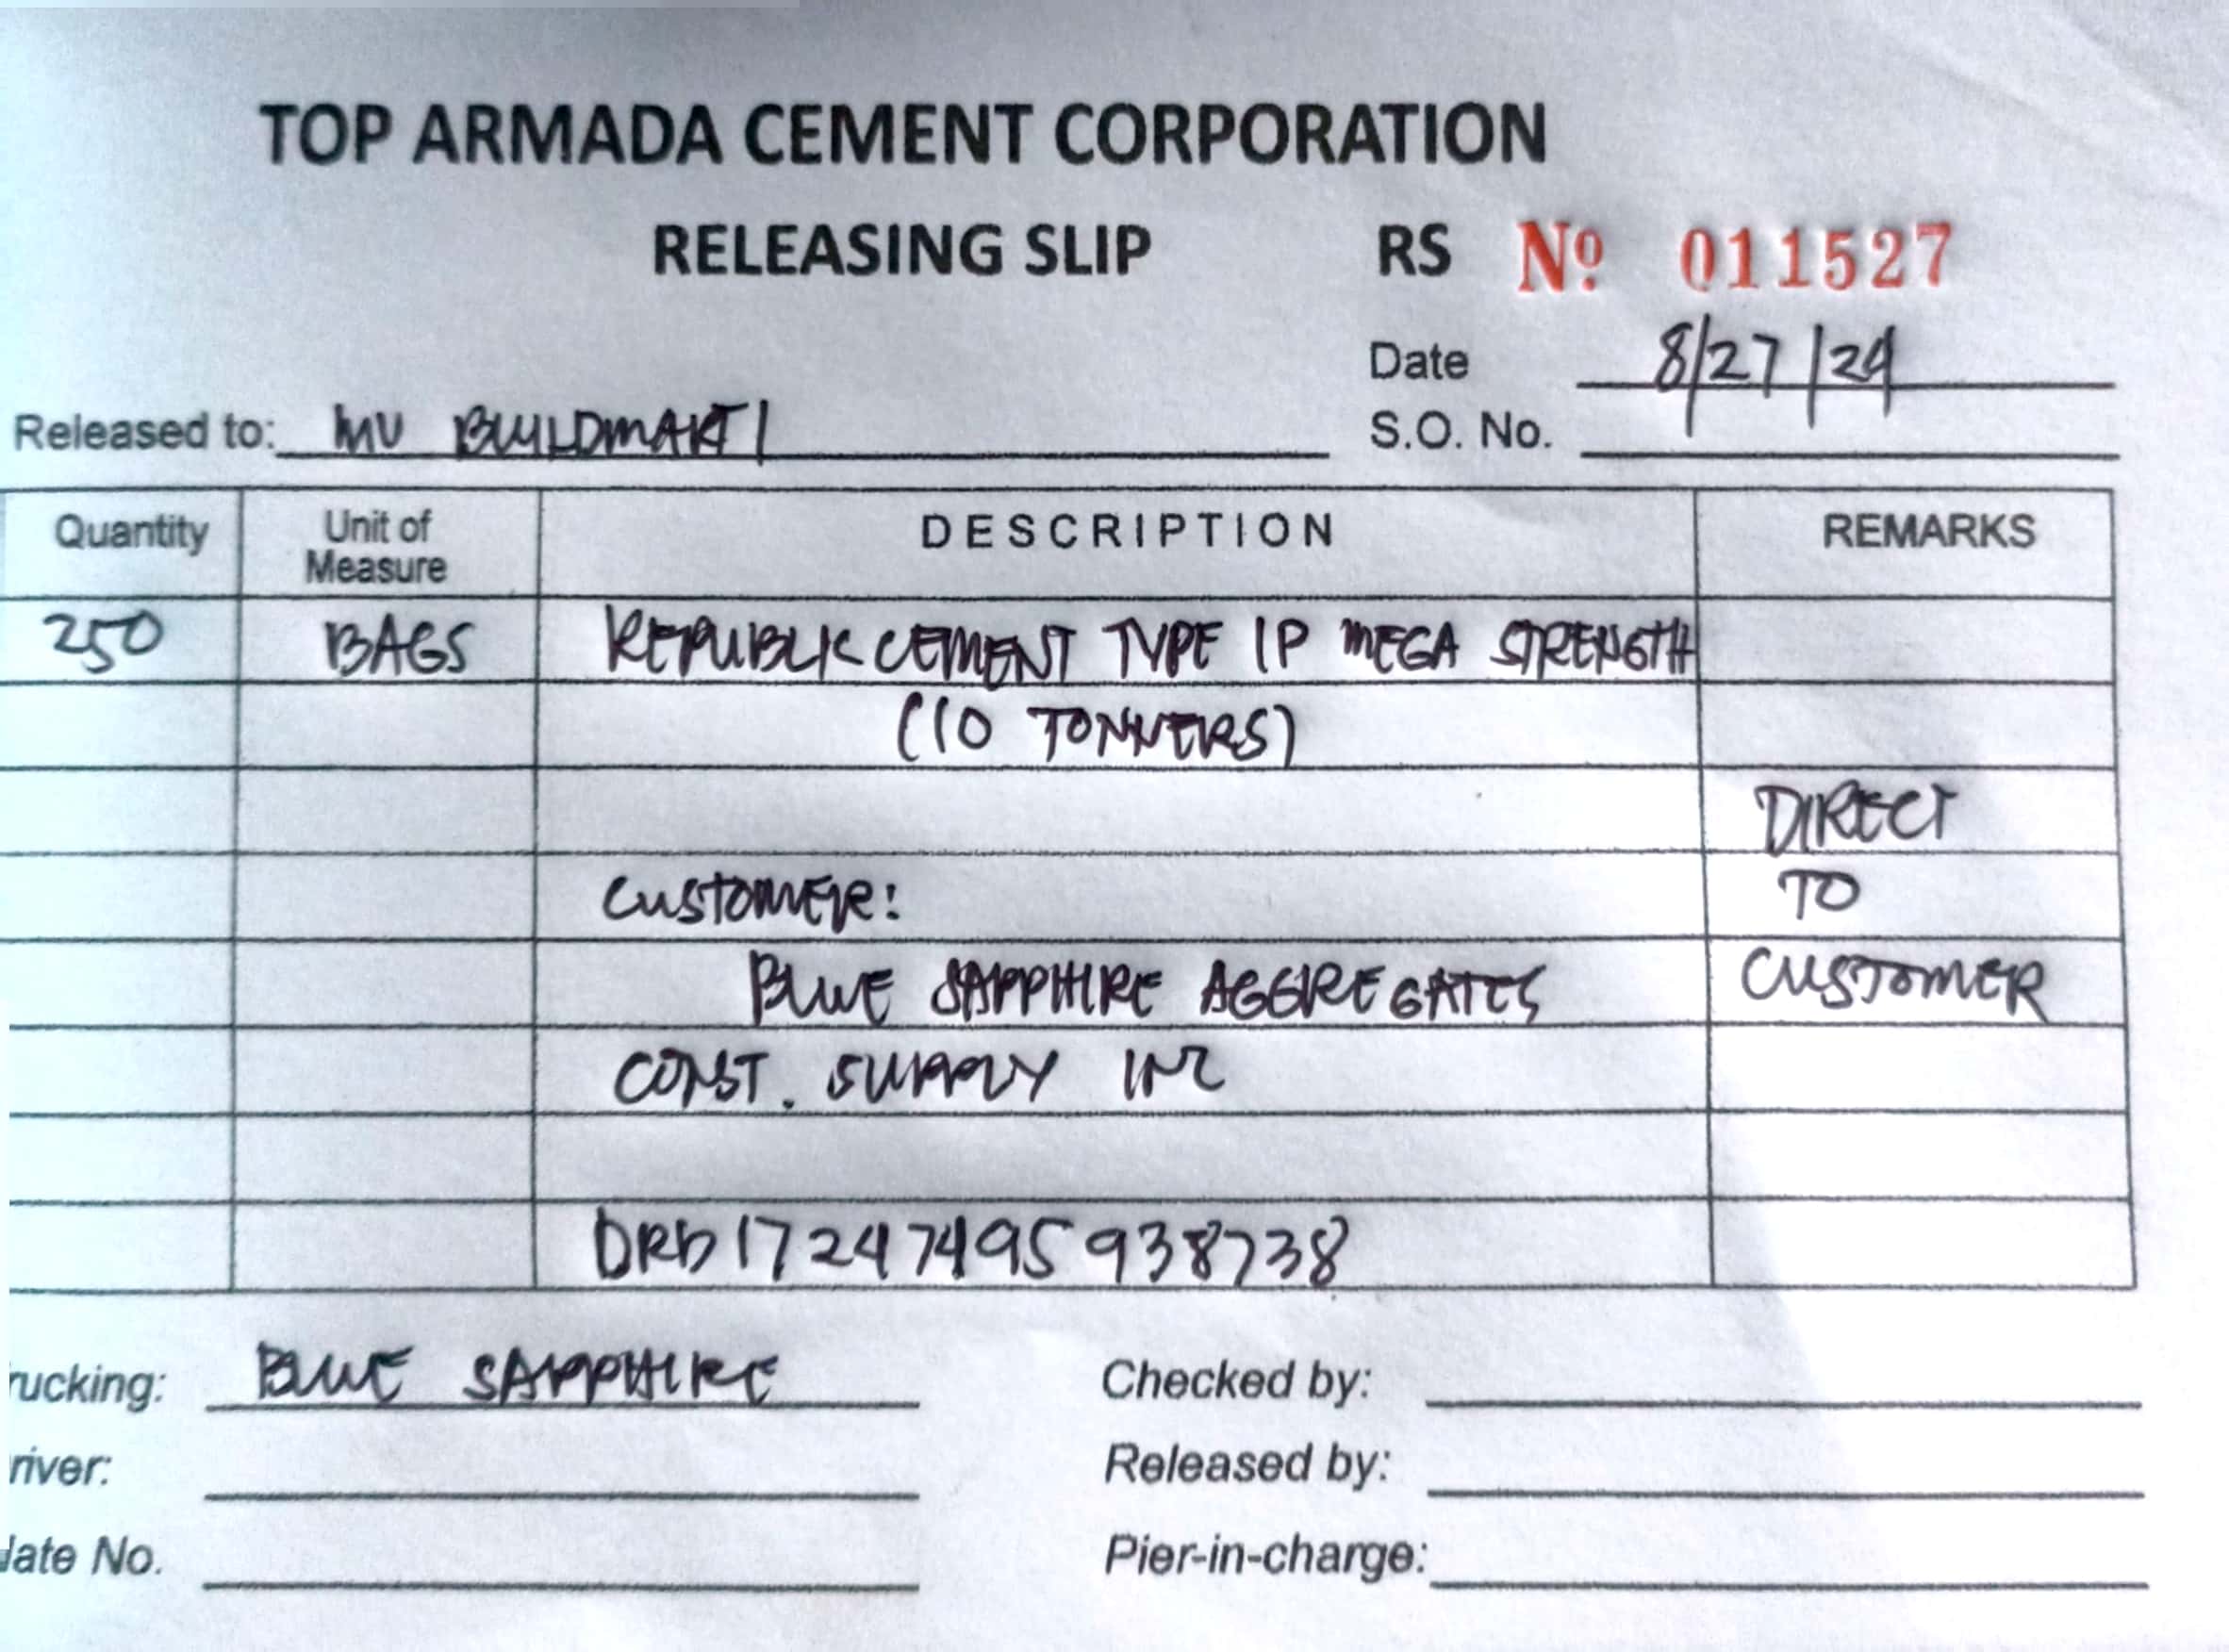 TOP ARMADA CEMENT CORPORATION
RELEASING SLIP RS Nº 011527
Date 8/27/24
Released to: MV BUILDMART 1 S.O. No.
Quantity Unit of Measure DESCRIPTION REMARKS
250 BAGS REPUBLIC CEMENT TYPE 1P MEGA STRENGTH
(10 TONNERS)
DIRECT
CUSTOMER: TO
BLUE SAPPHIRE AGGREGATES CUSTOMER
CONST. SUPPLY INC
DRD17247495938738
rucking: BLUE SAPPHIRE Checked by:
river: Released by:
late No. Pier-in-charge: